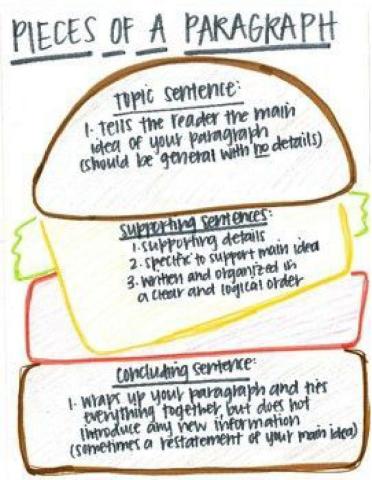 PIECES OF A PARAGRAPH
Topic sentence:
1. Tells the reader the main
idea of your paragraph
(should be general with no details)
Supporting sentences:
1. supporting details
2. specific to support main idea
3. written and organized in
a clear and logical order
Concluding sentence:
1. Wraps up your paragraph and ties
everything together, but does not
introduce any new information
(sometimes a restatement of your main idea)